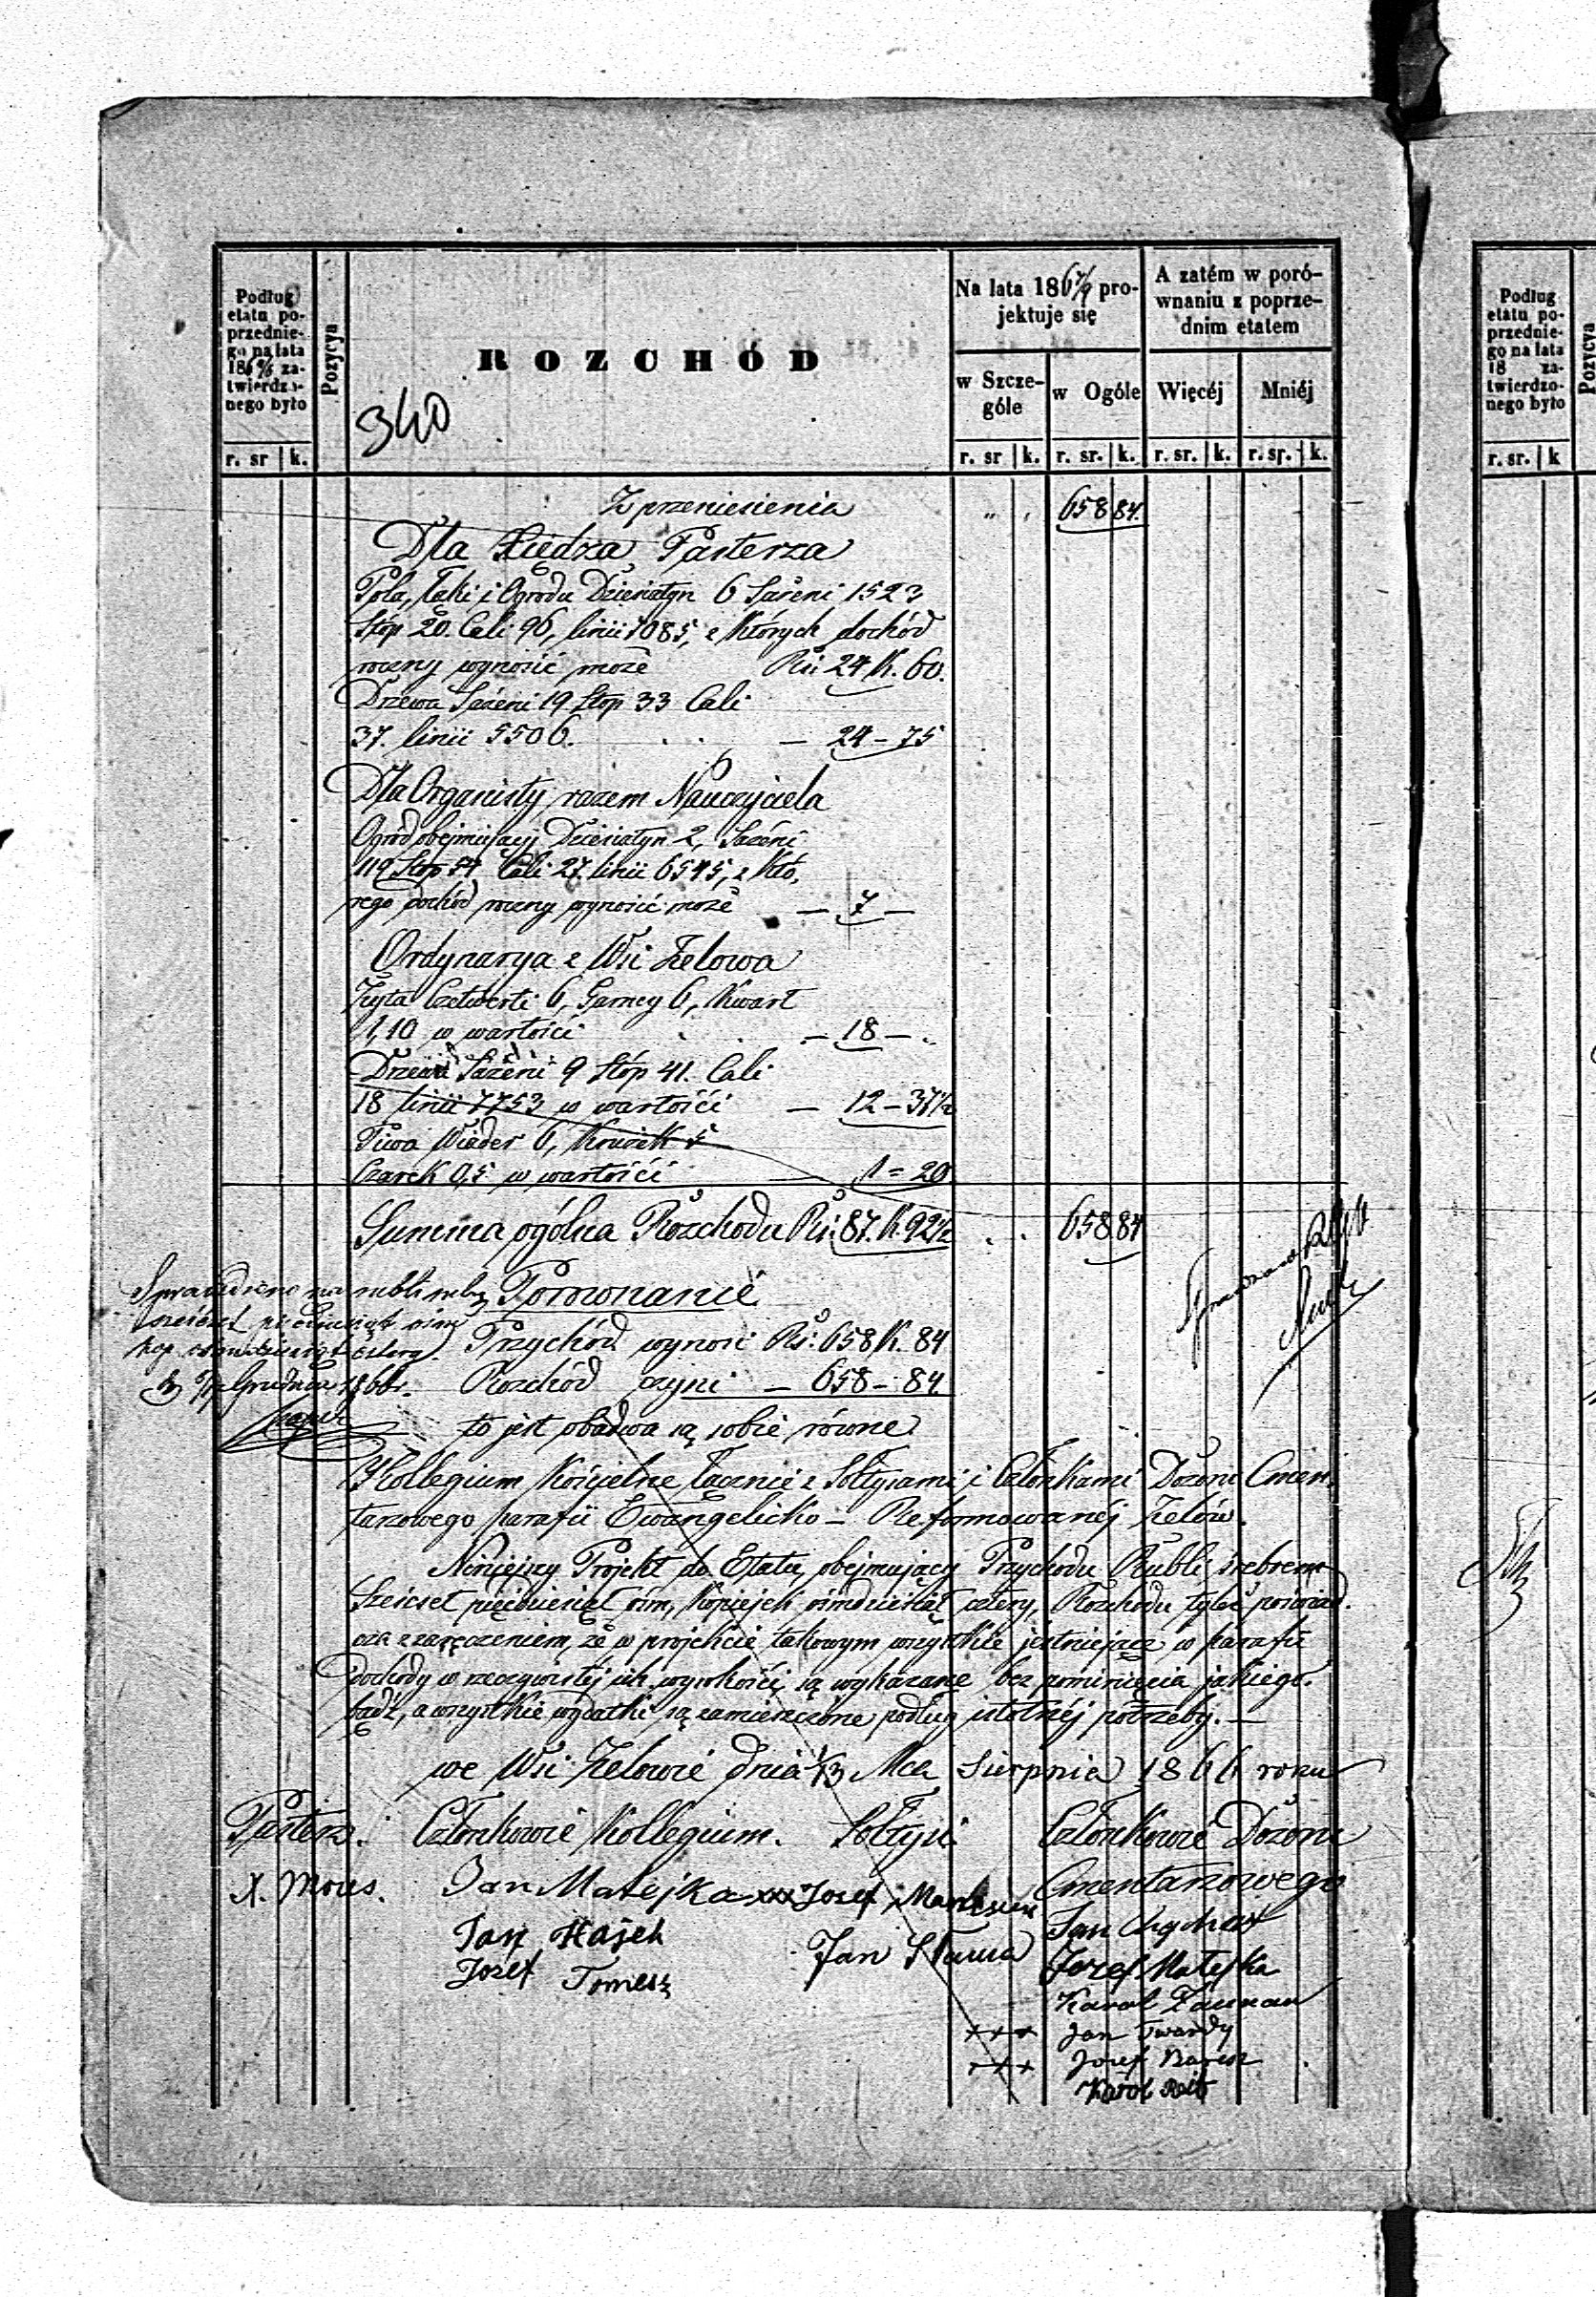 Podług etatu poprzedniego na lata 186 4/6 zatwierdzonego było
Pozycya
ROZCHÓD
340
Na lata 186 7/9 projektuje się
w Szczególe
w Ogóle
A zatém w porównaniu z poprzednim etatem
Więcéj
Mniéj
r. sr k.
r. sr k. r. sr. k. r. sr. k. r. sr. k.
Z przeniesienia " " 658 84.
Dla Xiędza Pasterza
Pola, Łąki i Ogrodu Dziesiatyn 6 Sażeni 1523
Stóp 20. Cali 96, linii 7085, z których dochód
roczny wynosić może Rs: 24 K. 60.
Drzewa Sażeni 19 Stóp 33 Cali
37. linii 5506. — 24 – 75
Dla Organisty razem Nauczyciela
Ogród obejmujący Dziesiatyn 2, Sażeni
119 Stóp 34 Cali 27. linii 6545, z któ,
rego dochód roczny wynosić może — 7 —
Ordynarya z Wsi Zelowa
Żyta Czetwerti 6, Garncy 6, Kwart
1,10 w wartości — 18 — "
Drzewa Sażeni 9 Stóp 41. Cali
18 linii 7753 w wartości — 12 – 37½
Piwa Wiader 6, Krużek 5
Czarek 0,5 w wartości 1 = 20
Summa ogólna Rozchodu Rs: 87. K. 92½ . . 658 84
Sprawdzono na rubli srebr.
sześćset pięćdziesiąt ośm
kop. ośmdziesiąt cztery.
Grudnia 1866 r.
Porównanie
Przychód wynosi Rs: 658 K. 84
Rozchód czyni — 658 – 84
to jest obadwa są sobie równe
Kollegium Kościelne łącznie z Sołtysami i Członkami Dozoru Cmen,
tarzowego parafii Ewangelicko – Reformowanéj Zelów.
Niniejszy Projekt do Etatu, obejmujący Przychodu Rubli srebrem
Sześćset pięćdziesiąt ośm, Kopiejek ośmdziesiąt cztery, Rozchodu tyleż poświad.
cza z zaręczeniem, że w projekcie takowym wszystkie istniejące w parafii
dochody w rzeczywistéj ich wysokości są wykazane bez pominięcia jakiego.
bądź, a wszystkie wydatki są zamieszczone podług istotnéj potrzeby. —
we Wsi Zelowie dnia 1/13 Mca Sierpnia 1866 roku
Pasterz. Członkowie Kollegium. Sołtysi Członkowie Dozoru
Cmentarzowego
X. Moes. Jan Matejka xxx Jozef
Jan Hajek Jan Sława
Jozef Tomesz
Jozef Matejka
Karol
+++ Jan Twardy
+++ Jozef
Karol
Podług etatu poprzedniego na lata 18 zatwierdzonego było
Pozycya
r. sr. k